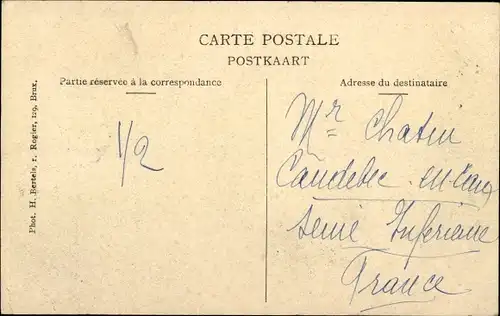 CARTE POSTALE
POSTKAART
Partie réservée à la correspondance
Adresse du destinataire
Phot. H. Bertels, r. Rogier, 129, Brux.
1/2
Mr Chatin
Caudebec-en-Caux
Seine Inférieure
France